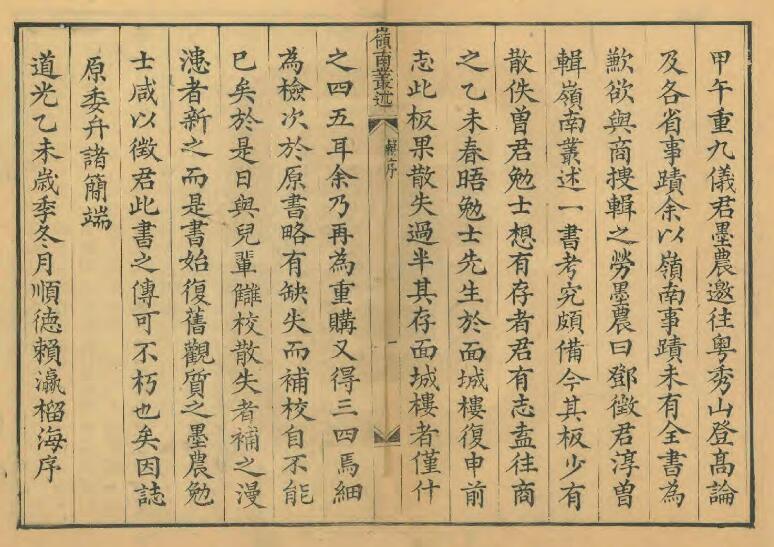 甲午重九儀君墨農邀往粤秀山登髙論
及各省事蹟余以嶺南事蹟未有全書為
歉欲與商搜輯之勞墨農曰鄧徵君淳曾
輯嶺南叢述一書考究頗備今其板少有
散佚曾君勉士想有存者君有志盍往商
之乙未春晤勉士先生於面城樓復申前
志此板果散失過半其存面城樓者僅什
嶺南叢述
賴序
一
之四五耳余乃再為重購又得三四焉細
為檢次於原書略有缺失而補校自不能
已矣於是日與兒輩讎校散失者補之漫
漶者新之而是書始復舊觀質之墨農勉
士咸以徵君此書之傳可不朽也矣因誌
原委弁諸簡端
道光乙未歲季冬月順徳賴瀛榴海序